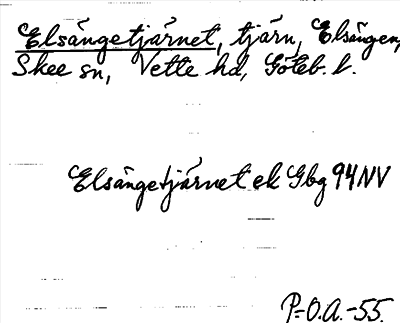 Elsängetjärnet, tjärn, Elsängen,
Skee sn, Vette hd, Göteb. l.
Elsängetjärnet ek Gbg 94 NV
P-O.A.-55.